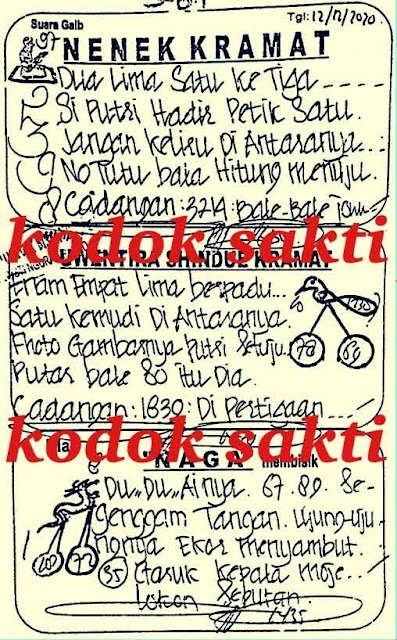 Suara Gaib
Tgl: 12/12/2020
97 NENEK KRAMAT
Dua Lima Satu Ke Tiga ----
Si Putri Hadir Petik Satu.
Jangan Keliru Di Antaranya...
No Tutu bala Hitung menuju.
Cadangan: 3214: Bale-Bale
2
3
9
8
kodok sakti
UWENTIRA SHINDUE KRAMAT
Enam Empat Lima berpadu...
Satu Kemudi Di Antaranya.
Photo Gambarnya Putri Setuju.
Putas bale 80 itu Dia.
Cadangan: 1830: Di Pertigaan ---
78
kodok sakti
Ia "NAGA" membisik
Du,,Du,,Ainya. 67.89. Se-
genggam Tangan. Ujung-uju
ngnya Ekor menyambut.
35 Masuk Kepala